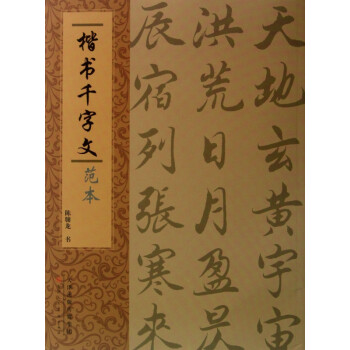 楷书千字文
范本
书
天地玄黃宇宙
洪荒日月盈昃
辰宿列張寒來